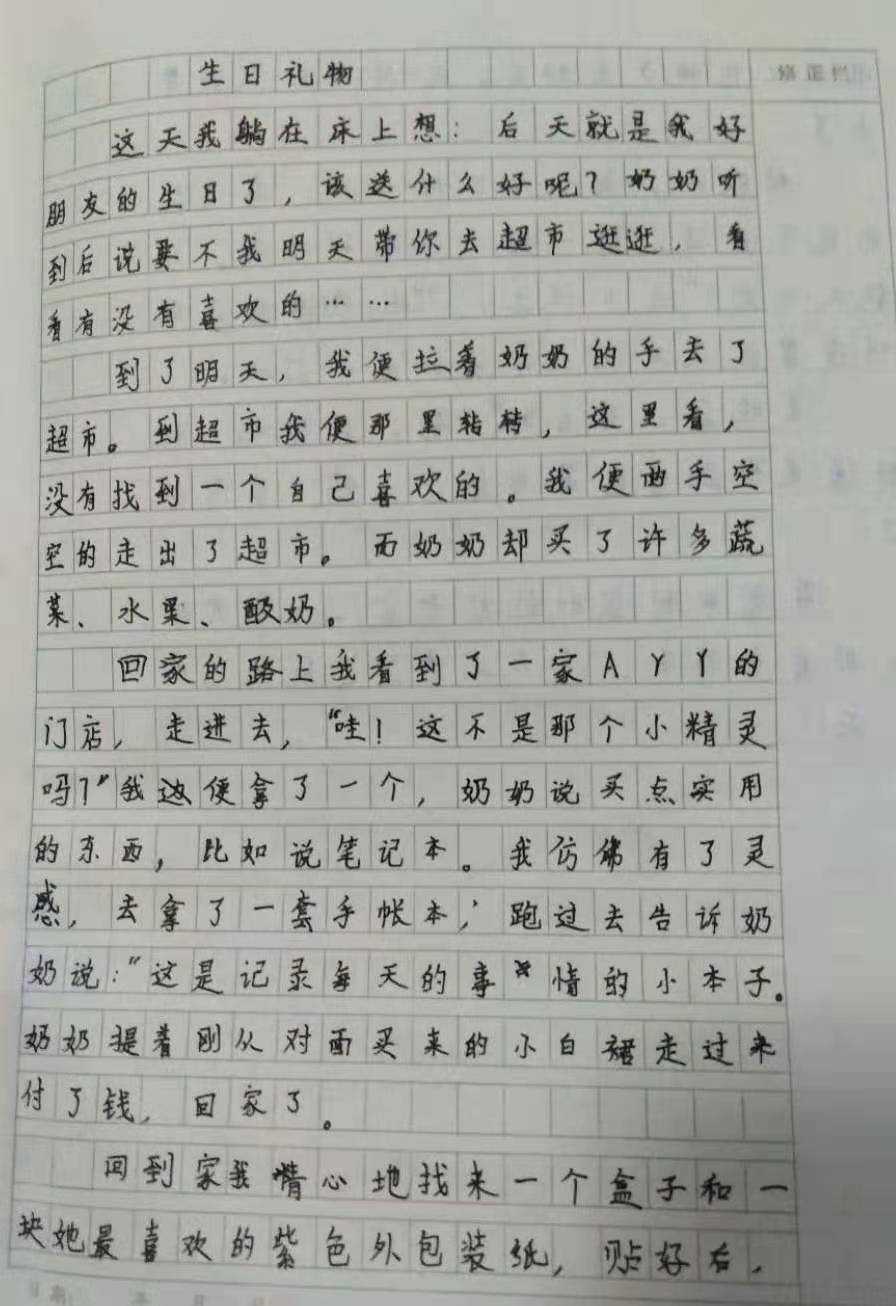 生日礼物
修正栏
这天我躺在床上想：后天就是我好
朋友的生日了，该送什么好呢？奶奶听
到后说要不我明天带你去超市逛逛，看
看有没有喜欢的……
到了明天，我便拉着奶奶的手去了
超市。到超市我便那里转转，这里看，
没有找到一个自己喜欢的。我便两手空
空的走出了超市。而奶奶却买了许多蔬
菜、水果、酸奶。
回家的路上我看到了一家AYY的
门店，走进去，“哇！这不是那个小精灵
吗？”我边便拿了一个，奶奶说买点实用
的东西，比如说笔记本。我仿佛有了灵
感，去拿了一套手帐本，跑过去告诉奶
奶说：”这是记录每天的事情的小本子。
奶奶提着刚从对面买来的小白裙走过来
付了钱，回家了。
回到家我精心地找来一个盒子和一
块她最喜欢的紫色外包装纸，贴好后，